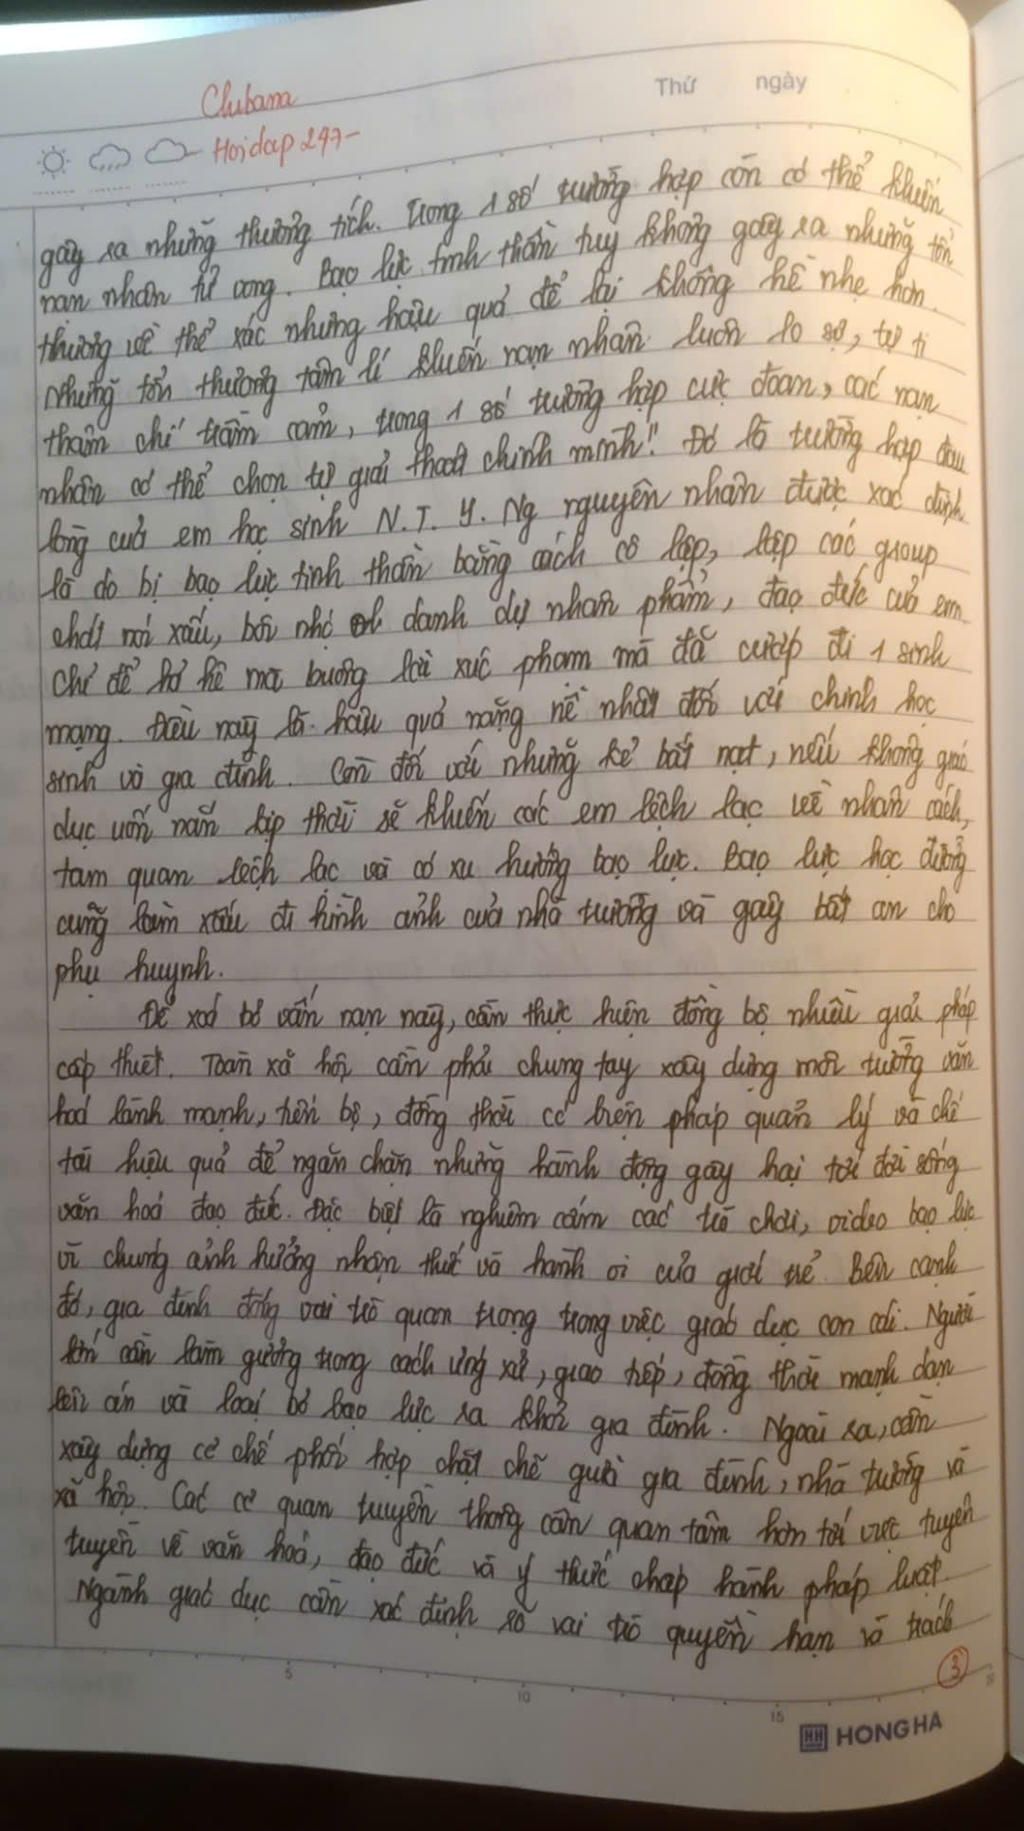 Thứ ngày
Chubana
Hoidap 247-
gây ra những thương tích. Trong 1 số trường hợp còn có thể khiến
nạn nhân tử vong. Bạo lực tinh thần tuy không gây ra những tổn
thương về thể xác nhưng hậu quả để lại không hề nhẹ hơn.
Những tổn thương tâm lí khiến nạn nhân luôn lo sợ, tự ti
thậm chí trầm cảm, trong 1 số trường hợp cực đoan, các nạn
nhân có thể chọn tự giải thoát chính mình! Đó là trường hợp đau
lòng của em học sinh N.T.Y.Ng nguyên nhân được xác định
là do bị bạo lực tinh thần bằng cách cô lập, lập các group
chát nói xấu, bôi nhọ danh dự nhân phẩm, đạo đức của em.
Chỉ để hả hê mà buông lời xúc phạm mà đã cướp đi 1 sinh
mạng. Điều này là hậu quả nặng nề nhất đối với chính học
sinh và gia đình. Còn đối với những kẻ bắt nạt, nếu không giáo
dục uốn nắn kịp thời sẽ khiến các em lệch lạc về nhân cách,
tam quan lệch lạc và có xu hướng bạo lực. Bạo lực học đường
cũng làm xấu đi hình ảnh của nhà trường và gây bất an cho
phụ huynh.
Để xoá bỏ vấn nạn này, cần thực hiện đồng bộ nhiều giải pháp
cấp thiết. Toàn xã hội cần phải chung tay xây dựng môi trường văn
hoá lành mạnh, tiến bộ, đồng thời có biện pháp quản lý và chế
tài hiệu quả để ngăn chặn những hành động gây hại tới đời sống
văn hoá đạo đức. Đặc biệt là nghiêm cấm các trò chơi, video bạo lực
vì chúng ảnh hưởng nhận thức và hành vi của giới trẻ. Bên cạnh
đó, gia đình đóng vai trò quan trọng trong việc giáo dục con cái. Người
lớn cần làm gương trong cách ứng xử, giao tiếp, đồng thời mạnh dạn
lên án và loại bỏ bạo lực ra khỏi gia đình. Ngoài ra, cần
xây dựng cơ chế phối hợp chặt chẽ giữa gia đình, nhà trường và
xã hội. Các cơ quan truyền thông cần quan tâm hơn tới việc tuyên
truyền về văn hoá, đạo đức và ý thức chấp hành pháp luật.
Ngành giáo dục cần xác định rõ vai trò quyền hạn và trách
3
5 10 15 20
HH HONG HA